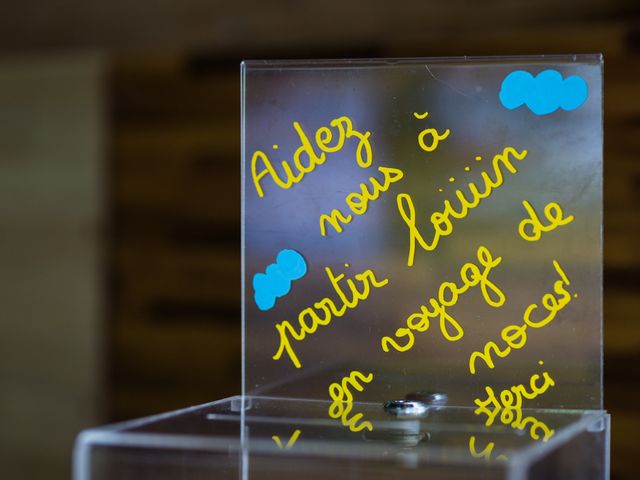 Aidez
nous à
partir loiiiin
en voyage de
noces!
Merci